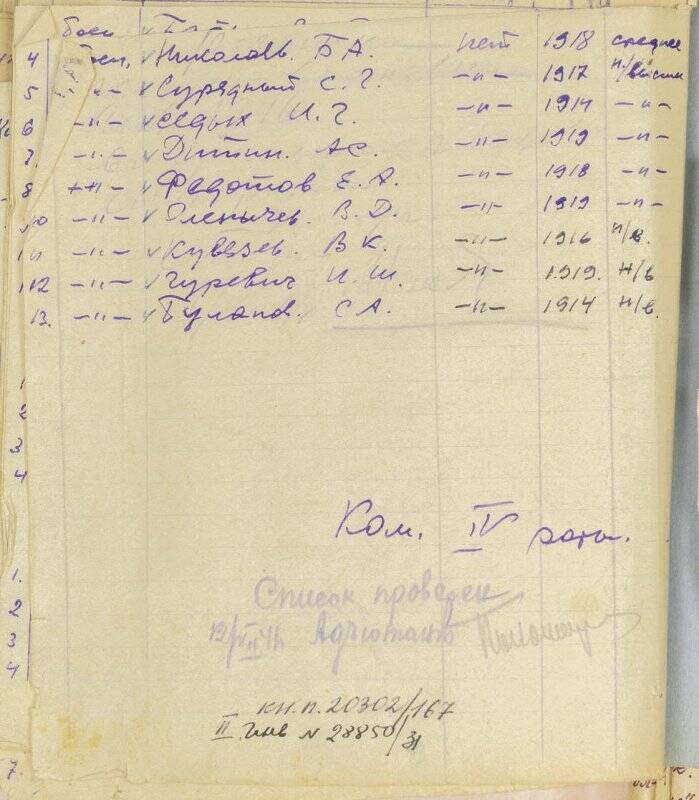 боец
4 Николаев. Б А. нет 1918 среднее
5 -"- Сурядный С. Г. -"- 1917 н/высш
6 -"- Седых И. Г. -"- 1914 -"-
7. -"- Дитин. А С. -"- 1919 -"-
8 -"- Федотов Е. А. -"- 1918 -"-
10 -"- Оленычев. В. Д. -"- 1919 -"-
11 -"- Кувезев. В К. -"- 1916 н/в.
12 -"- Гуревич И. Ш. -"- 1919. н/в
13. -"- Буланов. С А. -"- 1914 н/в.
1
2
3
4
Ком. IV роты.
Список проверен
12/VII 41 Адъютант
1.
2
3
4
кн. п. 20302/167
II инв № 28850/31
7.